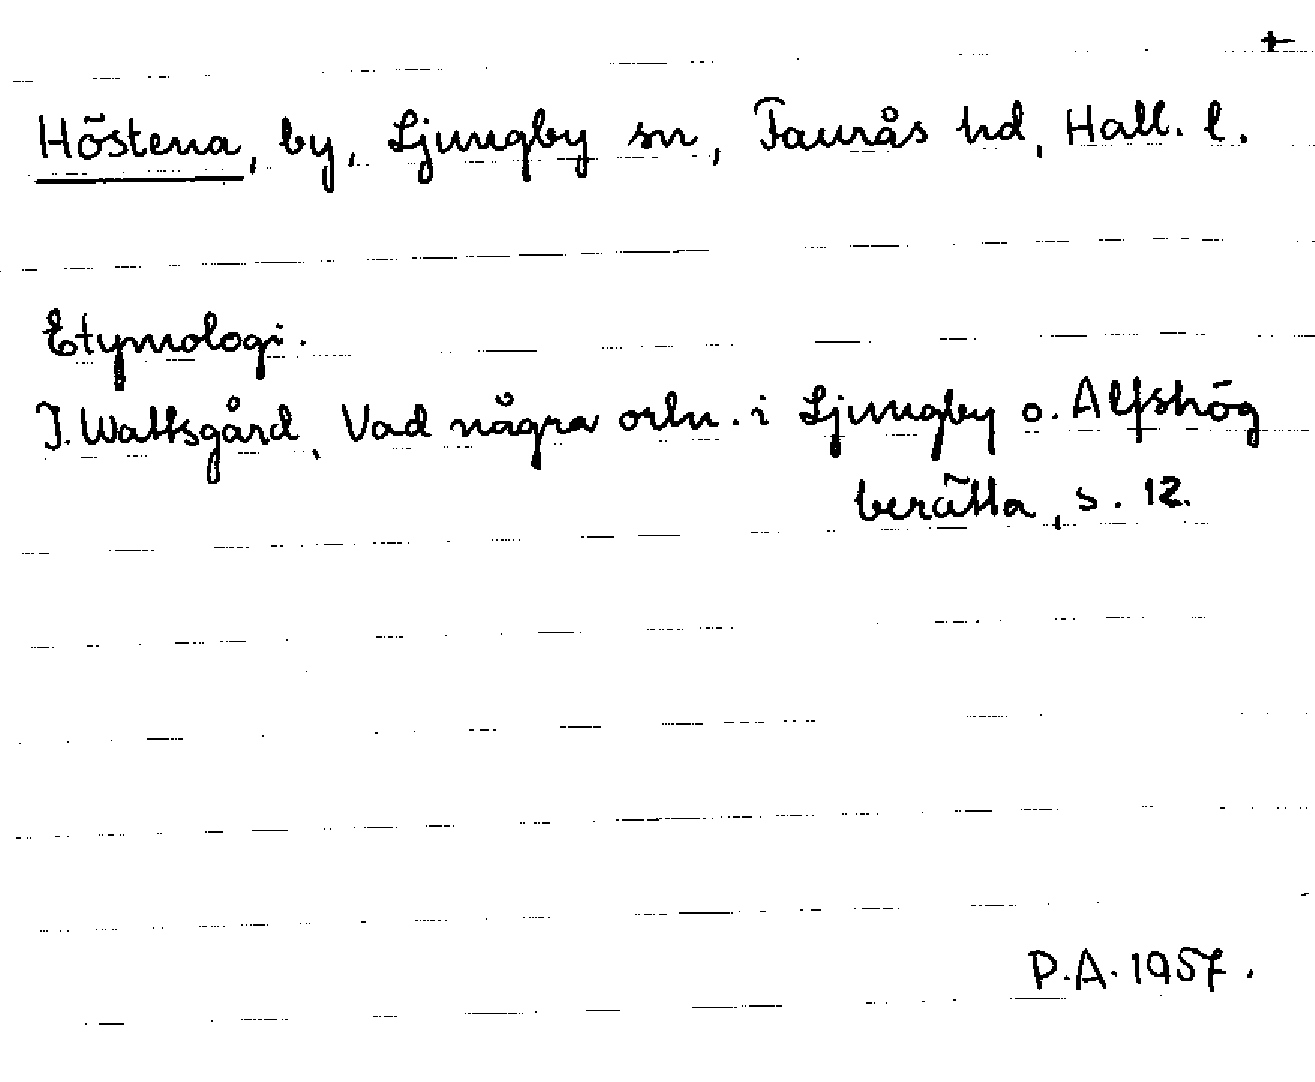 +
Höstena, by, Ljungby sn, Faurås hd, Hall. l.
Etymologi.
J. Wattsgård, Vad några ortn. i Ljungby o. Alfshög
berätta, s. 12.
P.A. 1957.